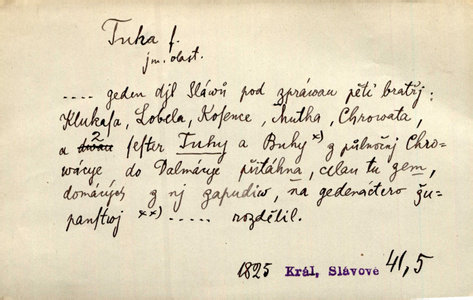 Tuha f.
jm. vlast.
.... geden djl Sláwů pod zpráwau pěti bratřj:
Klukasa, Lobela, Kosence, Muhla, Chrowata,
a 2 sester Tuhy a Buhy x) z půlnočnj Chro-
wácye do Dalmácye přitáhna, celau tu zem,
domácých z nj zapudiw, na gedenáctero žu-
panstwj xx) ..... rozdělil.
1825 Král, Slávové 41,5